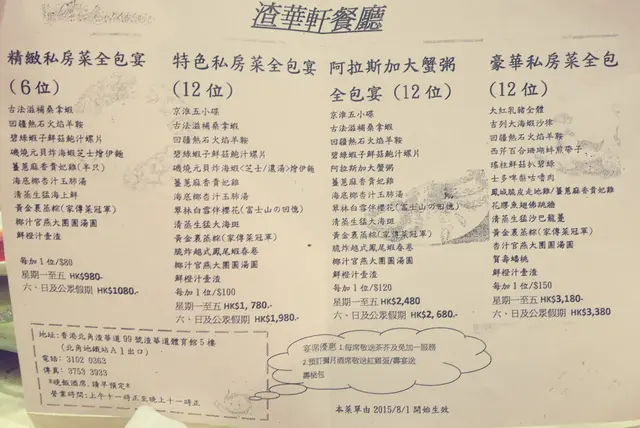 渣華軒餐廳
精緻私房菜全包宴
(6 位)
古法滋補桑拿蝦
回疆熱石火焰羊鞍
碧綠蝦子鮮菇鮑汁螺片
磯燒元貝炸海蝦芝士燴伊麵
薑蔥麻香貴妃雞(半只)
海底椰杏汁玉肺湯
清蒸生猛海上鮮
黃金裏蒸粽(家傳菜冠軍)
椰汁官燕大團圓湯圓
鮮橙汁壹渣
每加 1 位/$80
星期一至五 HK$980-
六、日及公眾假期 HK$1080.-
特色私房菜全包宴
(12 位)
京淮五小碟
古法滋補桑拿蝦
回疆熱石火焰羊鞍
碧綠蝦子鮮菇鮑汁螺片
磯燒元貝炸海蝦(芝士/濃湯>燴伊麵
薑蔥麻香貴妃雞
海底椰杏汁玉肺湯
翠林白雪伴櫻花(富士山の回憶)
清蒸生猛大海斑
黃金裏蒸粽(家傳菜冠軍)
脆炸越式鳳尾蝦春卷
椰汁官燕大團圓湯圓
鮮橙汁壹渣
每加 1 位/$100
星期一至五 HK$1, 780.-
六、日及公眾假期 HK$1,980.-
阿拉斯加大蟹粥
全包宴 (12 位)
京淮五小碟
古法滋補桑拿蝦
回疆熱石火焰羊鞍
碧綠蝦子鮮菇鮑汁螺片
阿拉斯加大蟹粥
薑蔥麻香貴妃雞
海底椰杏汁玉肺湯
翠林白雪伴櫻花(富士山の回憶)
清蒸生猛大海斑
黃金裏蒸粽(家傳菜冠軍)
脆炸越式鳳尾蝦春卷
椰汁官燕大團圓湯圓
鮮橙汁壹渣
每加 1 位/$120
星期一至五 HK$2,480
六、日及公眾假期 HK$2, 680.-
豪華私房菜全包
(12 位)
大紅乳豬全體
古列大海蝦沙律
回疆熱石火焰羊鞍
西芹百合珊瑚蚌煎帶子
瑤柱鮮菇扒碧綠
士多啤梨咕嚕肉
鳳城脆皮走地雞/薑蔥麻香貴妃雞
花膠魚翅佛跳牆
清蒸生猛沙巴龍躉
黃金裏蒸粽(家傳菜冠軍)
杏汁官燕大團圓湯圓
賀壽蟠桃
鮮橙汁壹渣
每加 1 位/$150
星期一至五 HK$3,180-
六、日及公眾假期 HK$3,380
地址:香港北角渣華道 99 號渣華道體育館 5 樓
(北角地鐵站 A 1 出口)
電話: 3102 0363
傳真: 3753 3933
*晚飯酒席,請早預定*
營業時間:上午十一時正至晚上十一時正
宴席優惠：1.每席敬送茶芥及免加一服務
2.預訂彌月酒席敬送紅雞蛋/壽宴送
壽桃包
本菜單由 2015/8/1 開始生效